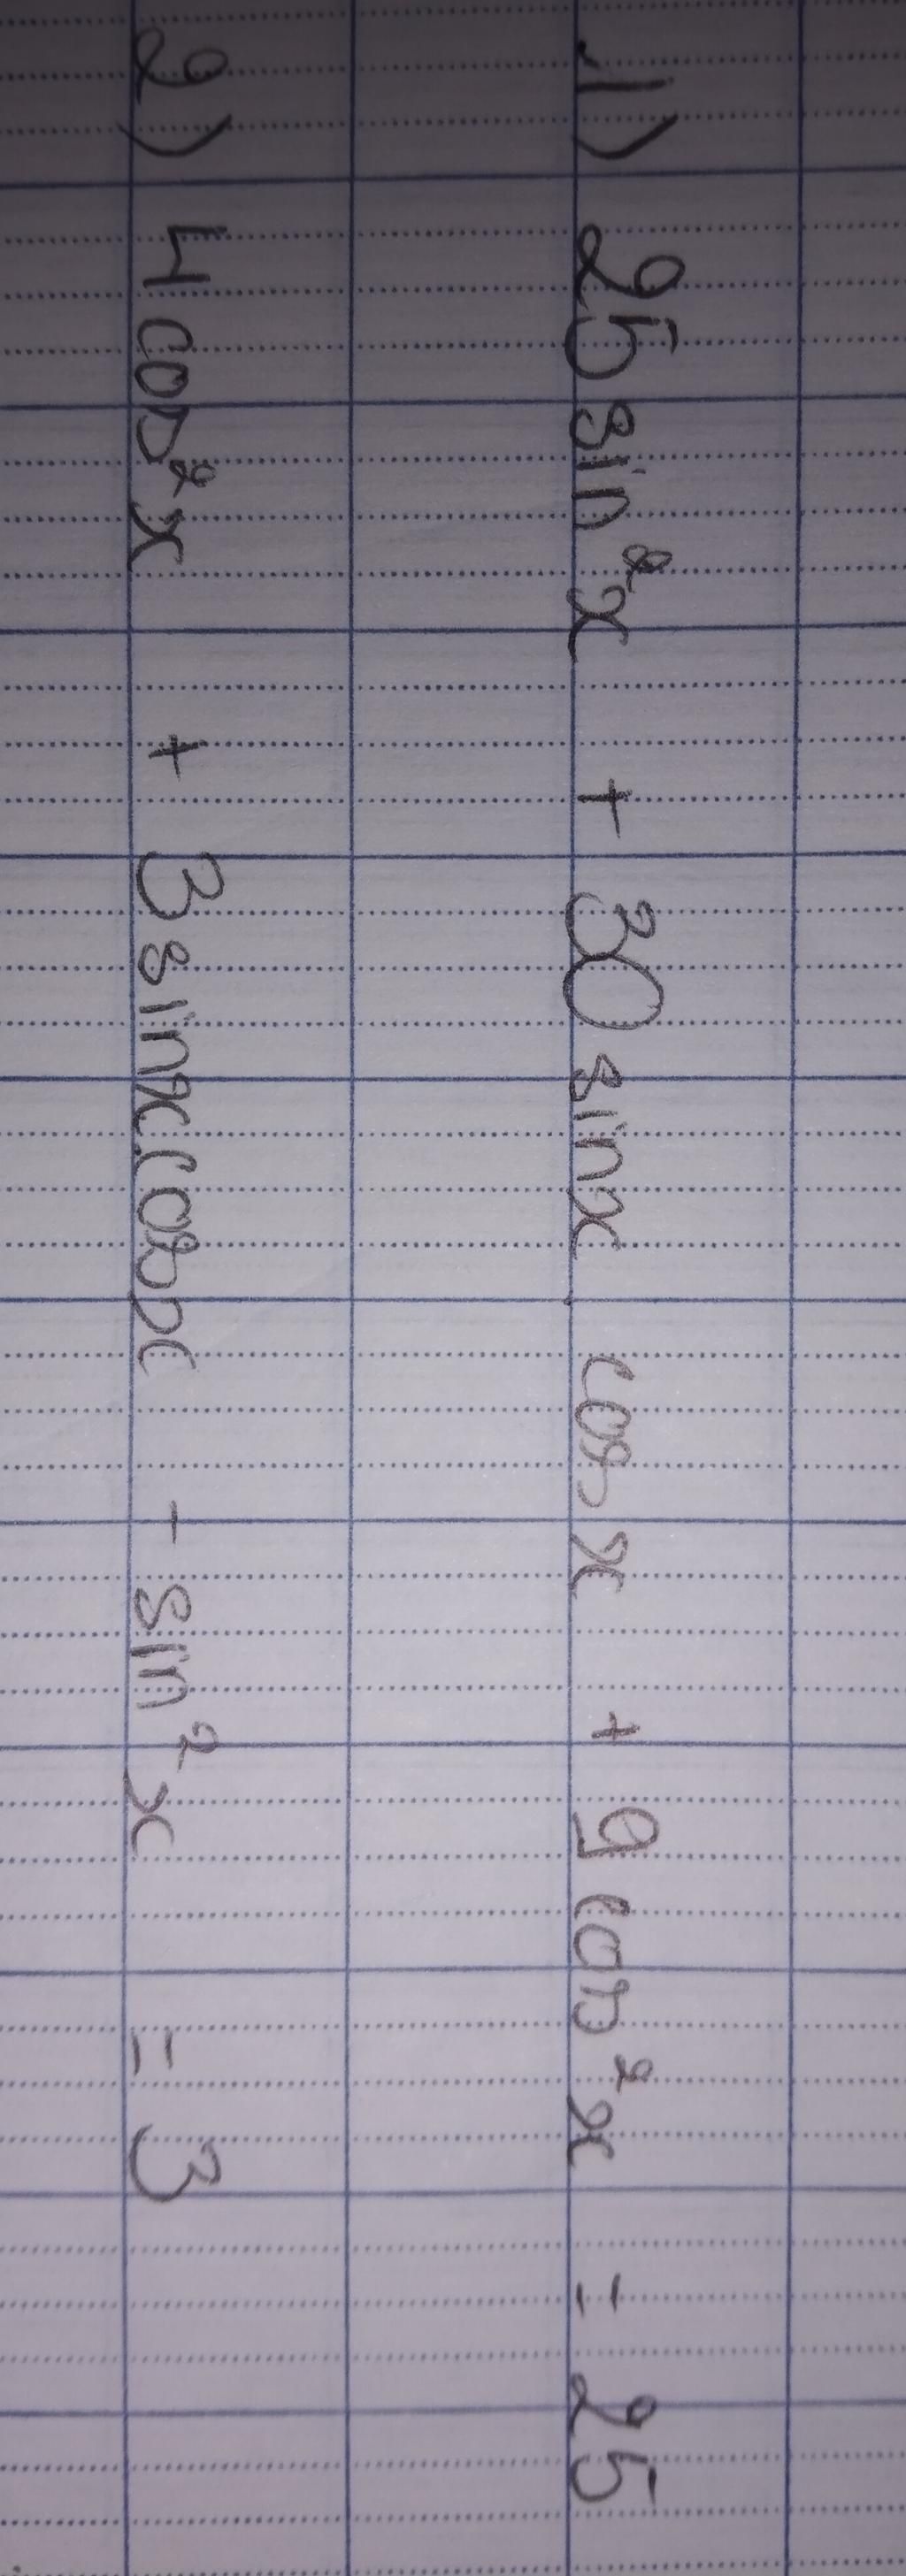 1) 25 sin²x + 30 sinx cosx + 9 cos²x = 25
2) 4 cos²x + 3 sinx.cosx - sin²x = 3